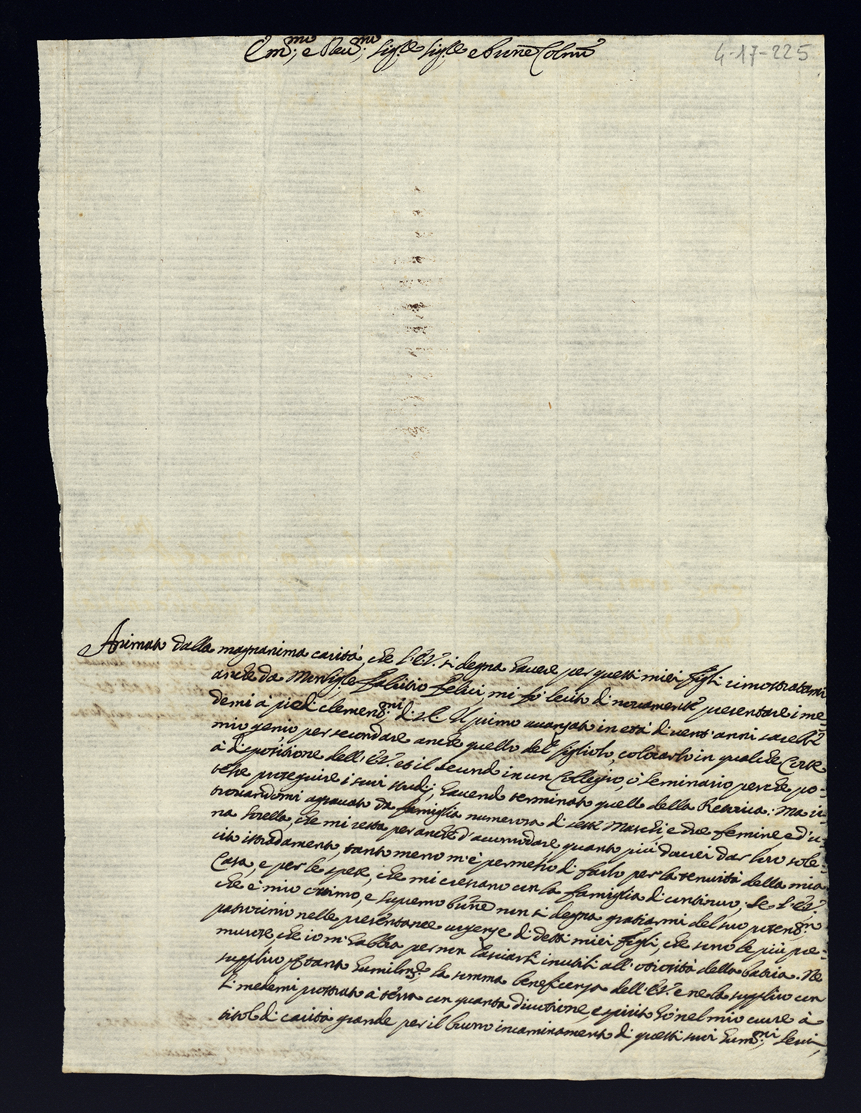 Em.mi, e Reu.mi Sig.le Sig.le e bune Colmi
4-17-225
Animato dalla magnanima carità, che l'E.V. si degna hauere per questi miei figli rimostratami
anche da Monsig.le Fabritio mi fò lecito di nouamente presentare i me
demi à piedi clement.mi di Il primo auanzato in età di vent'anni sarebbe
mio genio per secondare anche quello del figliolo, colocarlo in qualche Corte
à dispositione dell'E.V. et il secondo in un Collegio, ò seminario perche po=
tesse proseguire i suoi studij, hauendo terminato quello della Retorica. Ma ri=
trouandomi agrauato da famiglia numerosa di sette Maschi e due femine e d'u=
na Sorella, che mi resta per anche d'acomodare quanto più dourei dar loro sole=
cito istradamento, tanto meno m'è permesso di farlo per la tenuità della mia
Casa, e per le spese, che mi crescano con la famiglia di continuo, se l'E.V.
che è mio ottimo, e supremo bune non si degna gratiarmi del suo potent.mo
patrocinio nelle presentanee urgenze di detti miei figli, che sono le più pre=
murose, che io m'habbia per non lasciarli inutili all'otiosità della Patria. Ne
supplico per tanto humilm.te la somma beneficenza dell'E.V. e ne la supplico con
li medemi prostrato à terra con quanta diuotione, e spirito hò nel mio cuore à
titolo di carità grande per il buono incaminamento di questi suoi hum.mi serui,